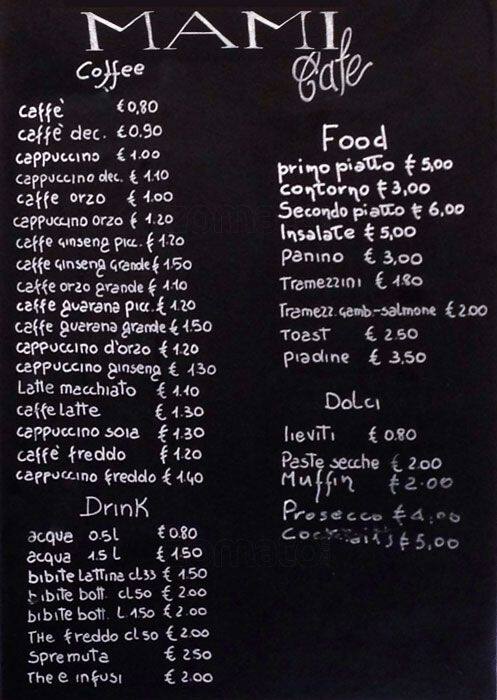 MAMI
Cafe
Coffee
caffè € 0,80
caffè dec. € 0.90
cappuccino € 1.00
cappuccino dec. € 1.10
caffe orzo € 1.00
cappuccino orzo € 1.20
caffe ginseng picc. € 1.20
caffe ginseng grande € 1.50
caffe orzo grande € 1.10
caffe guarana picc. € 1.20
caffe guarana grande € 1.50
cappuccino d'orzo € 1.20
cappuccino ginseng € 130
Latte macchiato € 1.10
caffe latte € 1.30
cappuccino soia € 1.30
caffè freddo € 1.20
cappuccino freddo € 1.40
Drink
acqua 0.5l € 0.80
acqua 1.5 l € 1.50
bibite lattina cl33 € 1.50
bibite bott. cl50 € 200
bibite bott. L.150 € 2.00
THe freddo cl 50 € 2.00
Spremuta € 250
The e infusi € 2.00
Food
primo piatto € 5,00
contorno € 3,00
Secondo piatto € 6,00
Insalate € 5,00
Panino € 3,00
Tramezzini € 1.80
Tramezz. gamb.-salmone € 2.00
Toast € 2.50
piadine € 3,50
Dolci
lieviti € 0.80
Paste secche € 2.00
Muffin € 2.00
Prosecco € 4,00
Cocktails € 5,00